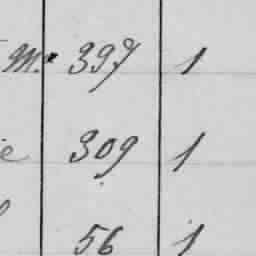 M. 397 1
e 309 1
56 1